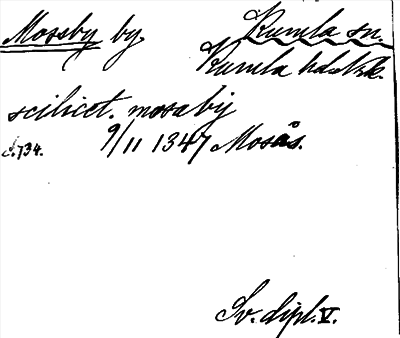 Mossby by Kumla sn.
Kumla hd. Nrk.
scilicet. mosaby
S. 734. 9/11 1347 Mosås.
Sv. dipl. V.